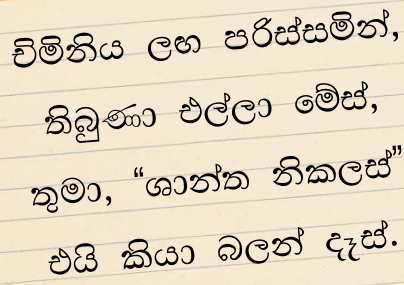 චිමිනිය ලඟ පරිස්සමින්,
තිබුණා එල්ලා මේස්,
තුමා, “ශාන්ත නිකලස්”
එයි කියා බලන් දෑස්.